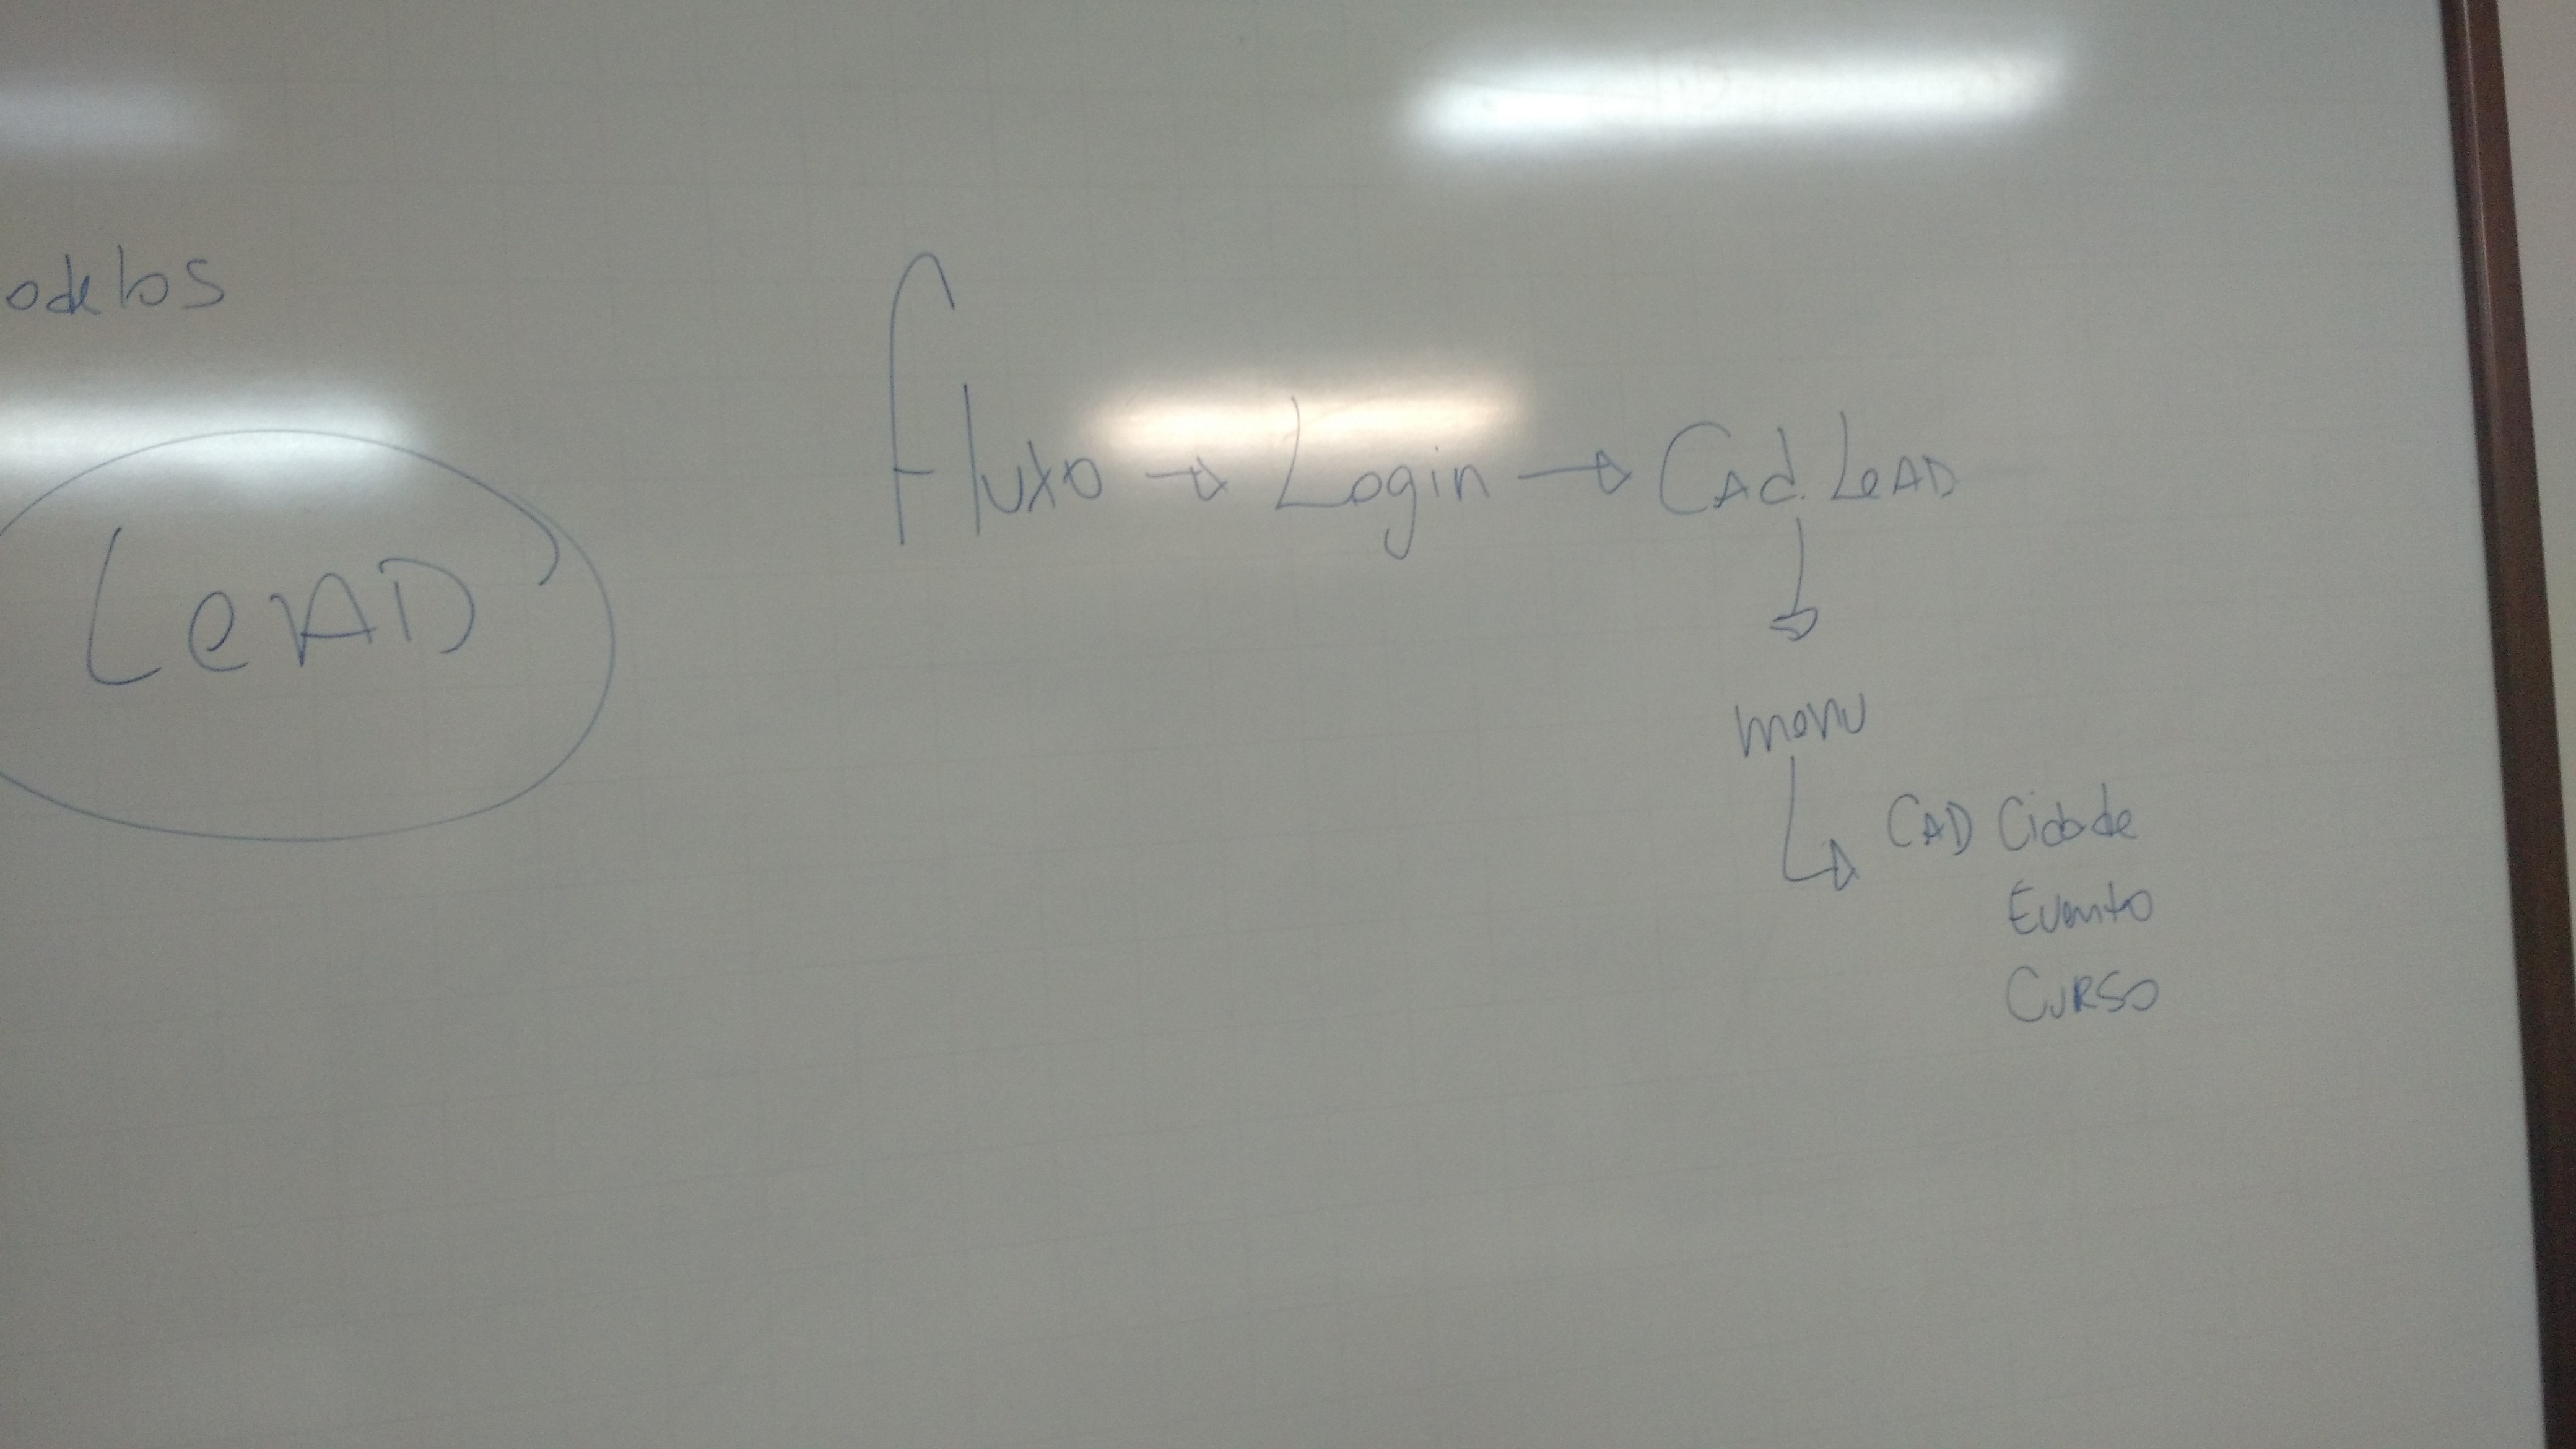 odelos
LeAD
Fluxo → Login → CAd. LeAD
menu
CAD Cidade
Evento
CURSO